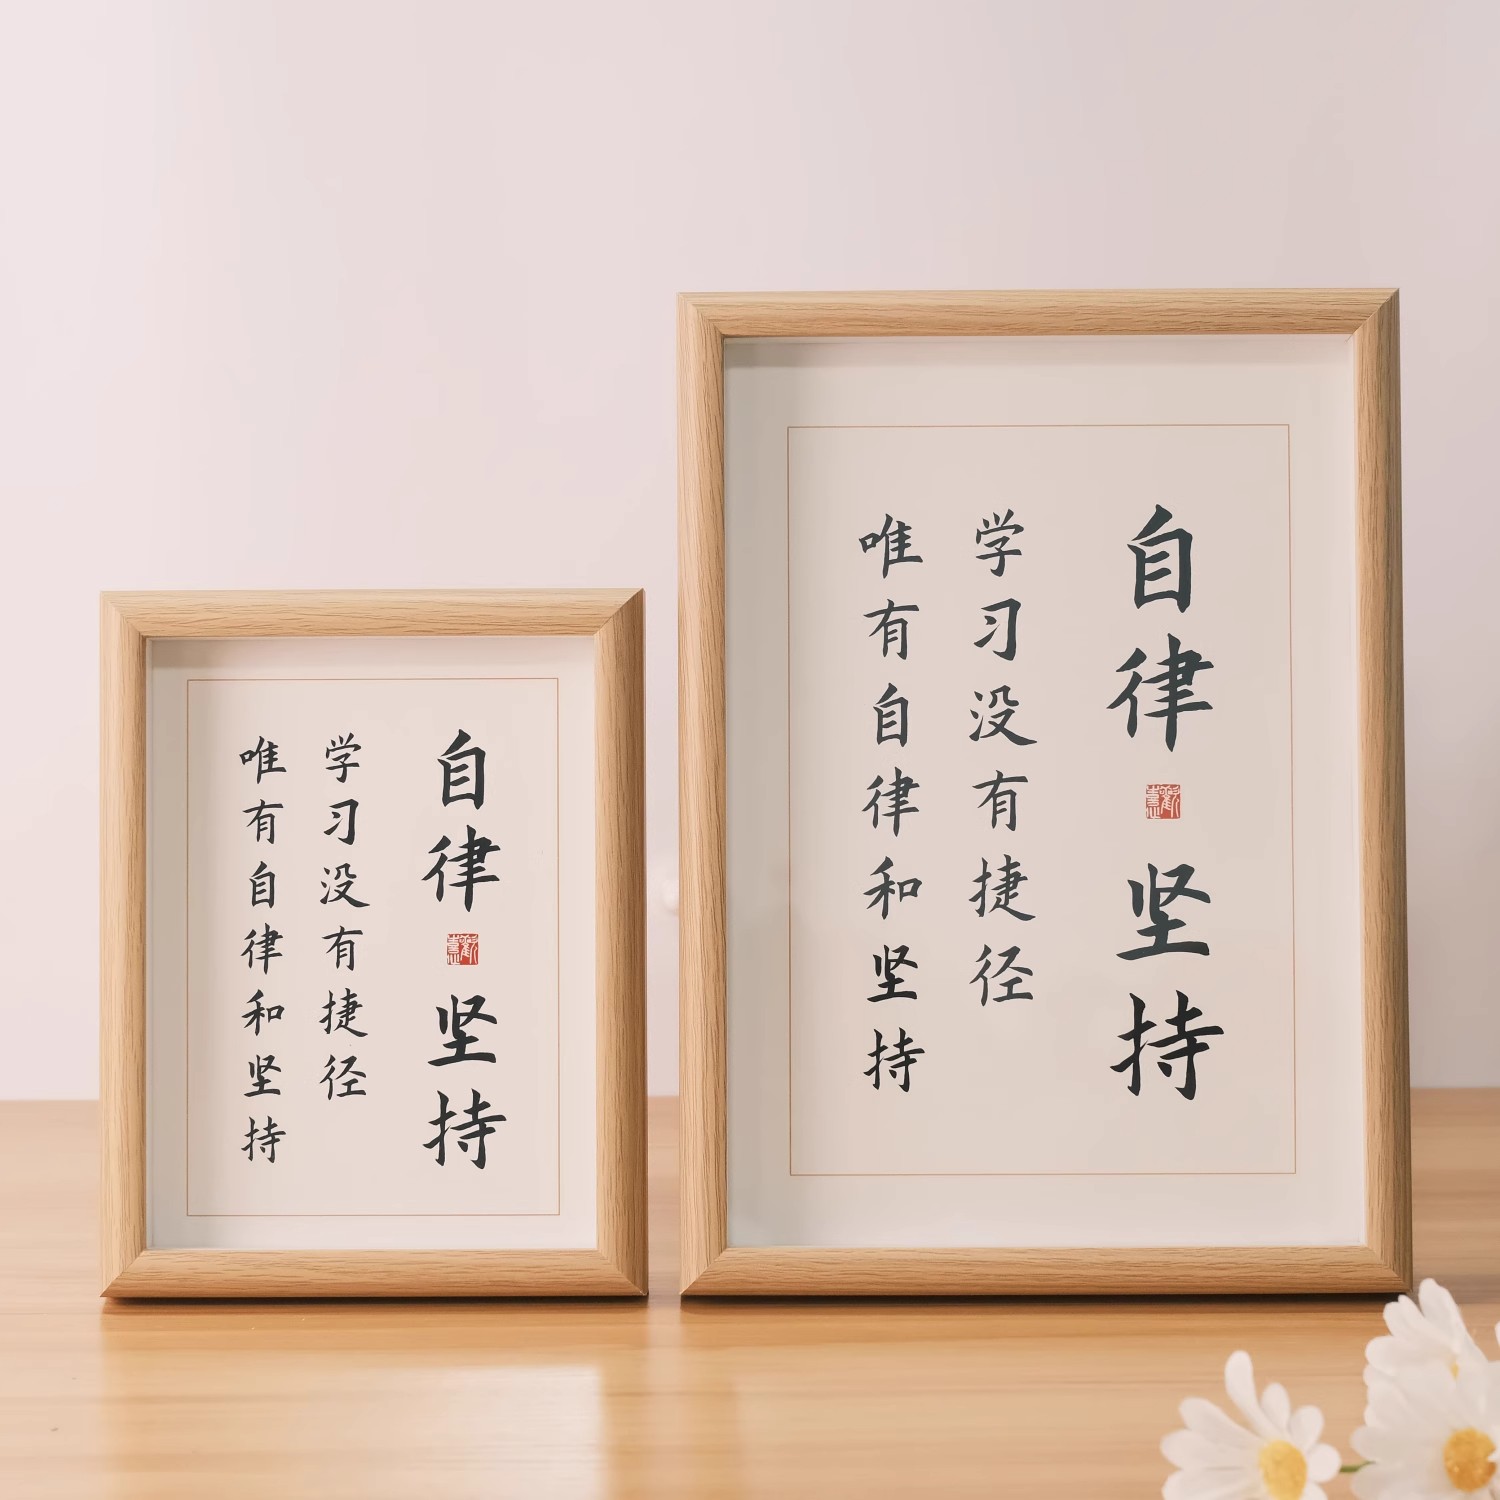 自律
歡喜
坚持
学习没有捷径
唯有自律和坚持
自律
歡喜
坚持
学习没有捷径
唯有自律和坚持